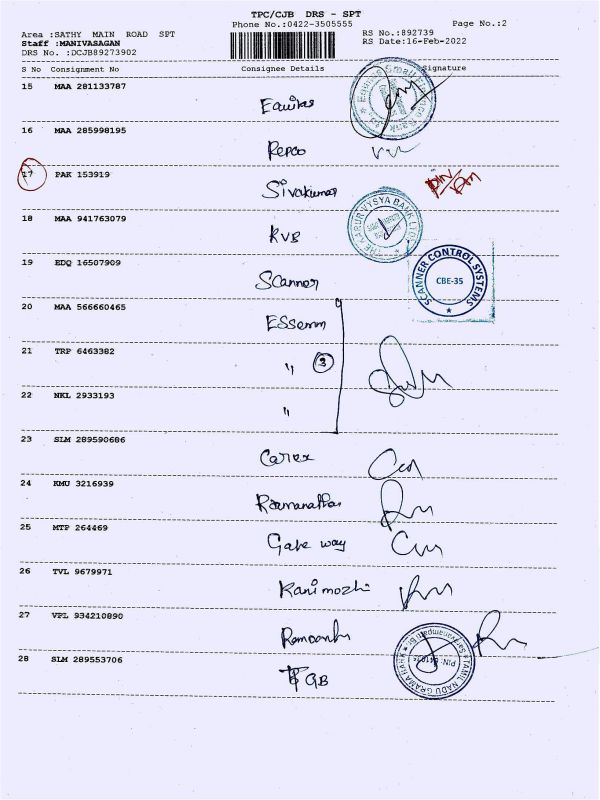 TPC/CJB DRS - SPT
Phone No.:0422-3505555
Page No.:2
Area :SATHY MAIN ROAD SPT
RS No.:892739
Staff :MANIVASAGAN
RS Date:16-Feb-2022
DRS No. :DCJB89273902
S No Consignment No Consignee Details Signature
15 MAA 281133787 Equitas
16 MAA 285998195 Repco
17 PAK 153919 Sivakumar
18 MAA 941763079 KVB
THE KARUR VYSYA BANK LTD
19 EDQ 16507909 Scanner
SCANNER CONTROL SYSTEMS
CBE-35
20 MAA 566660465 ESSemm
21 TRP 6463382 " 3
22 NKL 2933193 "
23 SLM 289590686 Carex
24 KMU 3216939 Ramanathan
25 MTP 264469 Gate way
26 TVL 9679971 Kanimozhi
27 VPL 934210890
28 SLM 289553706 GB
TAMIL NADU GRAMA BANK